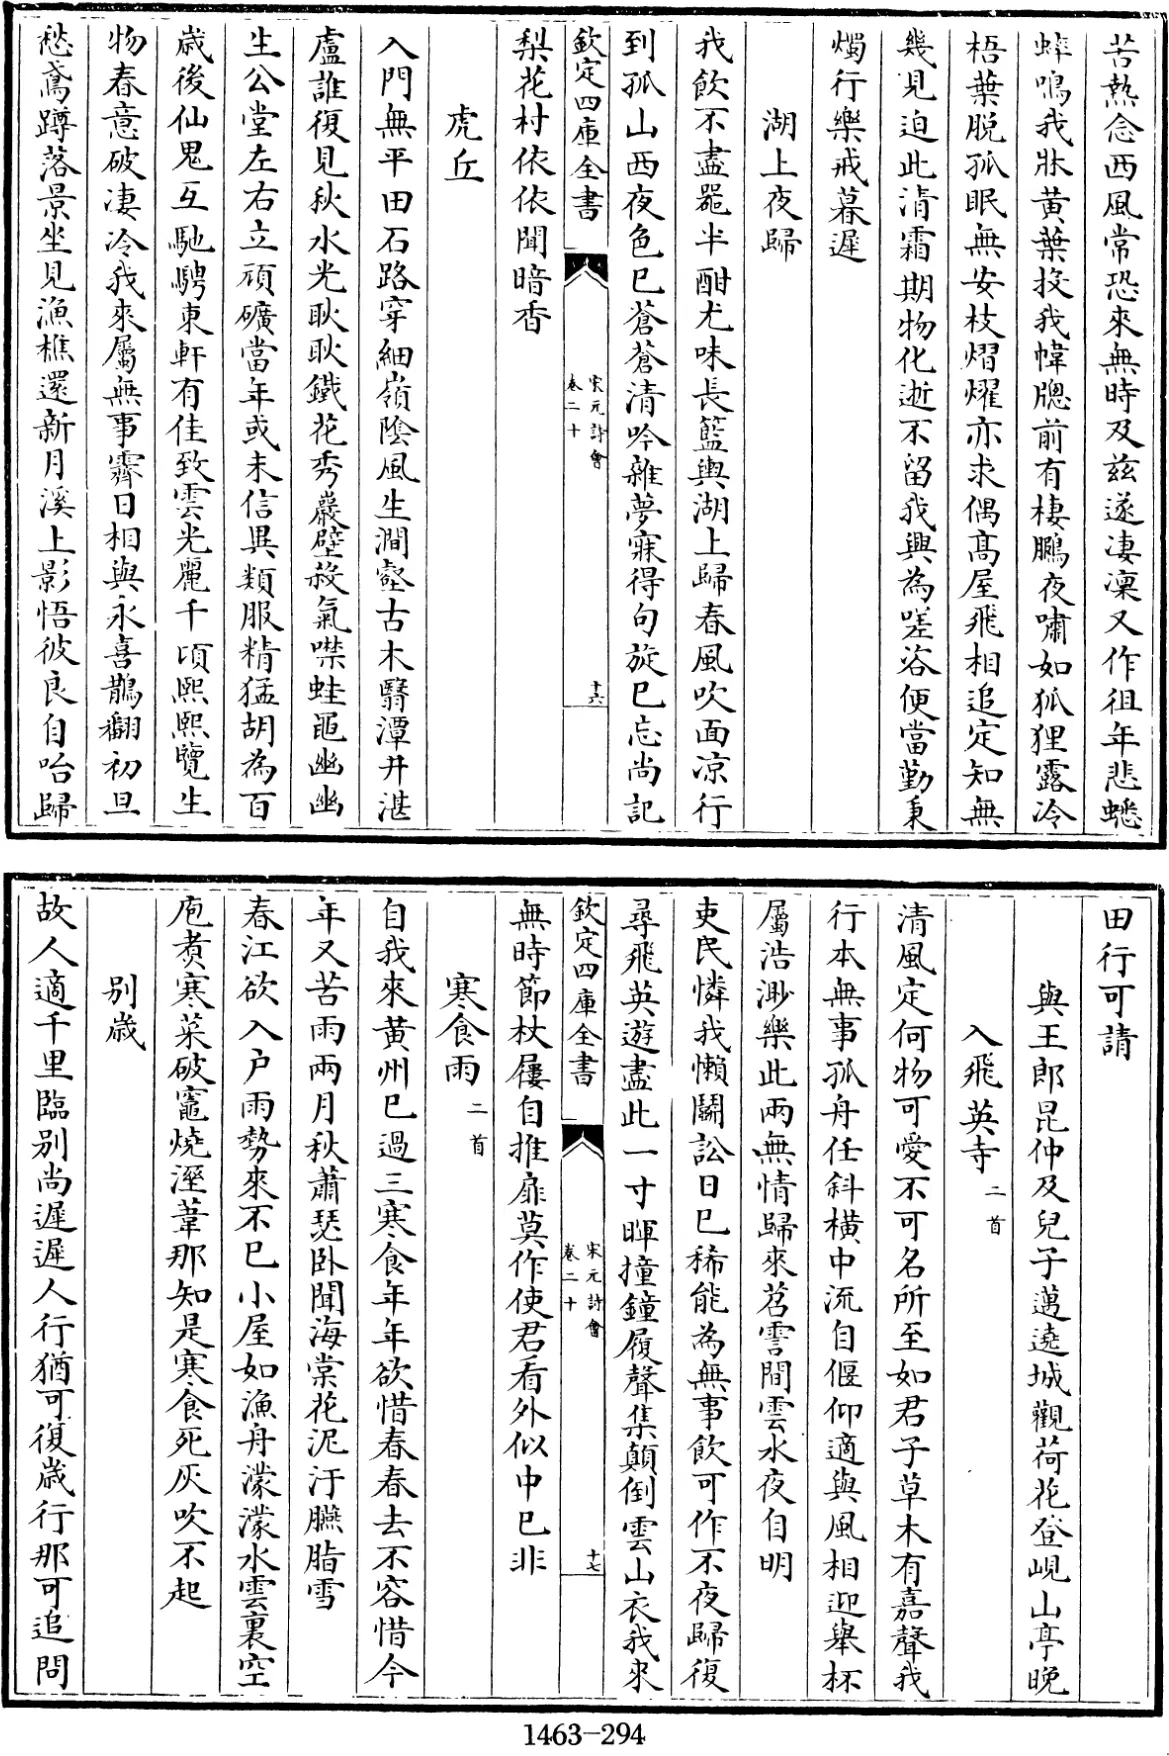 苦熱念西風常恐來無時及兹遂凄凜又作徂年悲蟋
蟀鳴我牀黄葉投我幃牎前有棲鵩夜嘯如狐狸露冷
梧葉脱孤眠無安枝熠燿亦求偶髙屋飛相追定知無
幾見迫此清霜期物化逝不留我興為嗟咨便當勤秉
燭行樂戒暮遲
湖上夜歸
我飲不盡器半酣尤味長籃輿湖上歸春風吹面凉行
到孤山西夜色已蒼蒼清吟雜夢寐得句旋已忘尚記
欽定四庫全書
宋元詩會
卷二十
十六
梨花村依依聞暗香
虎丘
入門無平田石路穿細嶺陰風生澗壑古木翳潭井湛
盧誰復見秋水光耿耿鐵花秀巖壁殺氣噤蛙黽幽幽
生公堂左右立頑礦當年或未信異類服精猛胡為百
歳後仙鬼互馳騁東軒有佳致雲光麗千頃熙熙覽生
物春意破凄冷我來屬無事霽日相與永喜鵲翻初旦
愁鳶蹲落景坐見漁樵還新月溪上影悟彼良自咍歸
田行可請
與王郎昆仲及兒子邁遶城觀荷花登峴山亭晚
入飛英寺二首
清風定何物可愛不可名所至如君子草木有嘉聲我
行本無事孤舟任斜橫中流自偃仰適與風相迎舉杯
屬浩渺樂此兩無情歸來苕霅間雲水夜自明
吏民憐我懶鬭訟日已稀能為無事飲可作不夜歸復
尋飛英遊盡此一寸暉撞鐘履聲集顛倒雲山衣我來
欽定四庫全書
宋元詩會
卷二十
十七
無時節杖屨自推扉莫作使君看外似中已非
寒食雨二首
自我來黄州已過三寒食年年欲惜春春去不容惜今
年又苦雨兩月秋蕭瑟卧聞海棠花泥汙臙脂雪
春江欲入户雨勢來不已小屋如漁舟濛濛水雲裏空
庖煮寒菜破竈燒溼葦那知是寒食死灰吹不起
别歳
故人適千里臨别尚遲遲人行猶可復歳行那可追問
1463-294